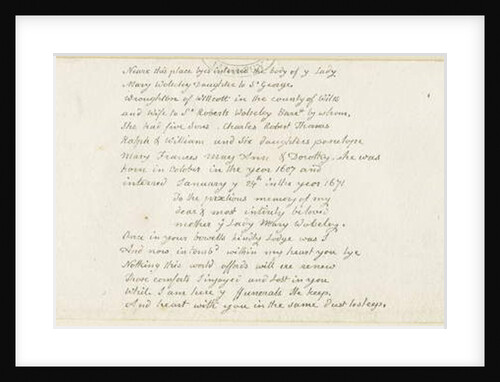 Neare this place lyes interred the body of y Lady
Mary Wolseley Daughter to Sr George
Wroughton of Willcott in the county of Wilts
and Wife to Sr Roberts Wolseley Barrt by whom
She had five Sons Charles Robert Thomas
Ralph & William and Six daughters penelope
Mary Frances Mary Ann & Dorothy, she was
born in October in the year 1607 and
interred January y 24th in the year 1671
To the pretious memory of my
dear & most intirely belov'd
mother y Lady Mary Wolseley.
Once in your bowells kindly Lodge was I
And now interb'd within my heart you lye
Nothing this world affords will ere renew
Those comforts I injoyed and Lost in you
While I am here y ffunerals Ile keep.
And heart with you in the same Dust to sleep.